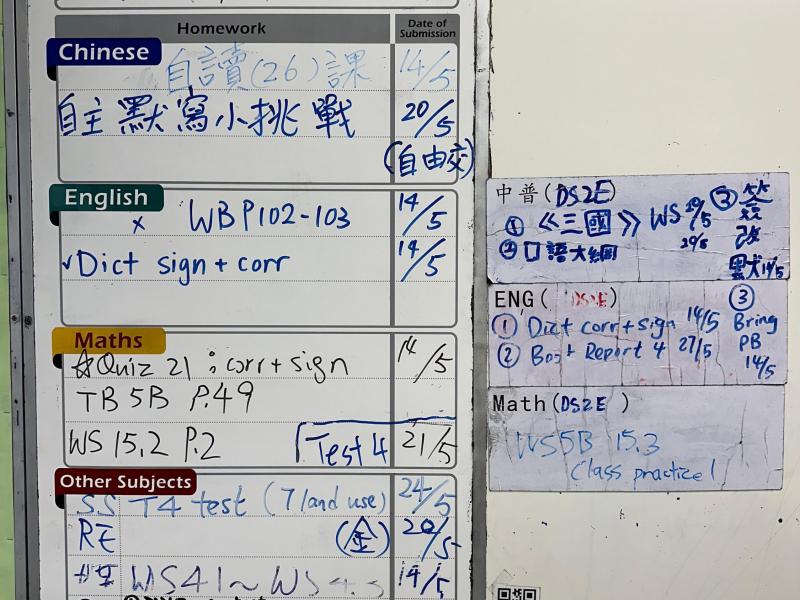 Homework
Date of Submission
Chinese
自讀(26)課 14/5
自主默寫小挑戰 20/5
(自由交)
English
x WB P102-103 14/5
✓Dict sign + corr 14/5
Maths
☆Quiz 21 : corr + sign 14/5
TB 5B P.49
WS 15.2 P.2 Test 4 21/5
Other Subjects
SS T4 test (7 land use) 24/5
RE (金) 20/5
WS 4.1 ~ WS 4.3 14/5
中普(DS2E)
① 《三國》 WS 29/5
② 口語大綱 29/5
③ 簽改默 14/5
ENG( DS2E)
① Dict corr + sign 14/5
② Book Report 4 27/5
③ Bring PB 14/5
Math(DS2E )
WS5B 15.3
Class practice 1